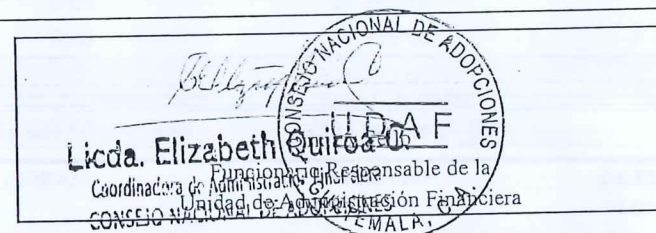 CONSEJO NACIONAL DE ADOPCIONES
U D A F
GUATEMALA, C. A.
Licda. Elizabeth Quiroa
Coordinadora de Administración Financiera
CONSEJO NACIONAL DE ADOPCIONES
Funcionario Responsable de la
Unidad de Administración Financiera